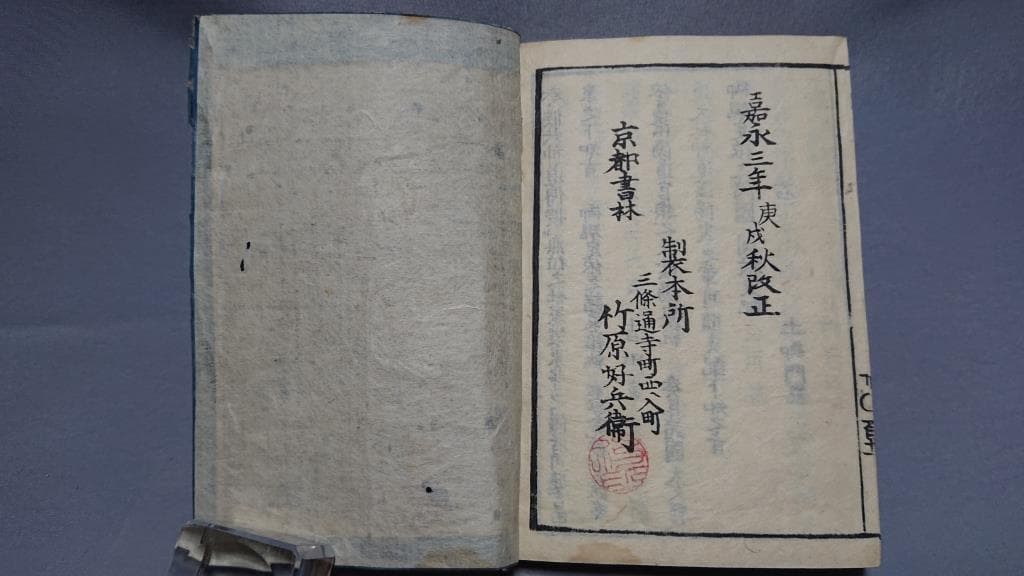 嘉永三年庚戌秋改正
製本所
京都書林
三條通寺町西入町
竹原好兵衛